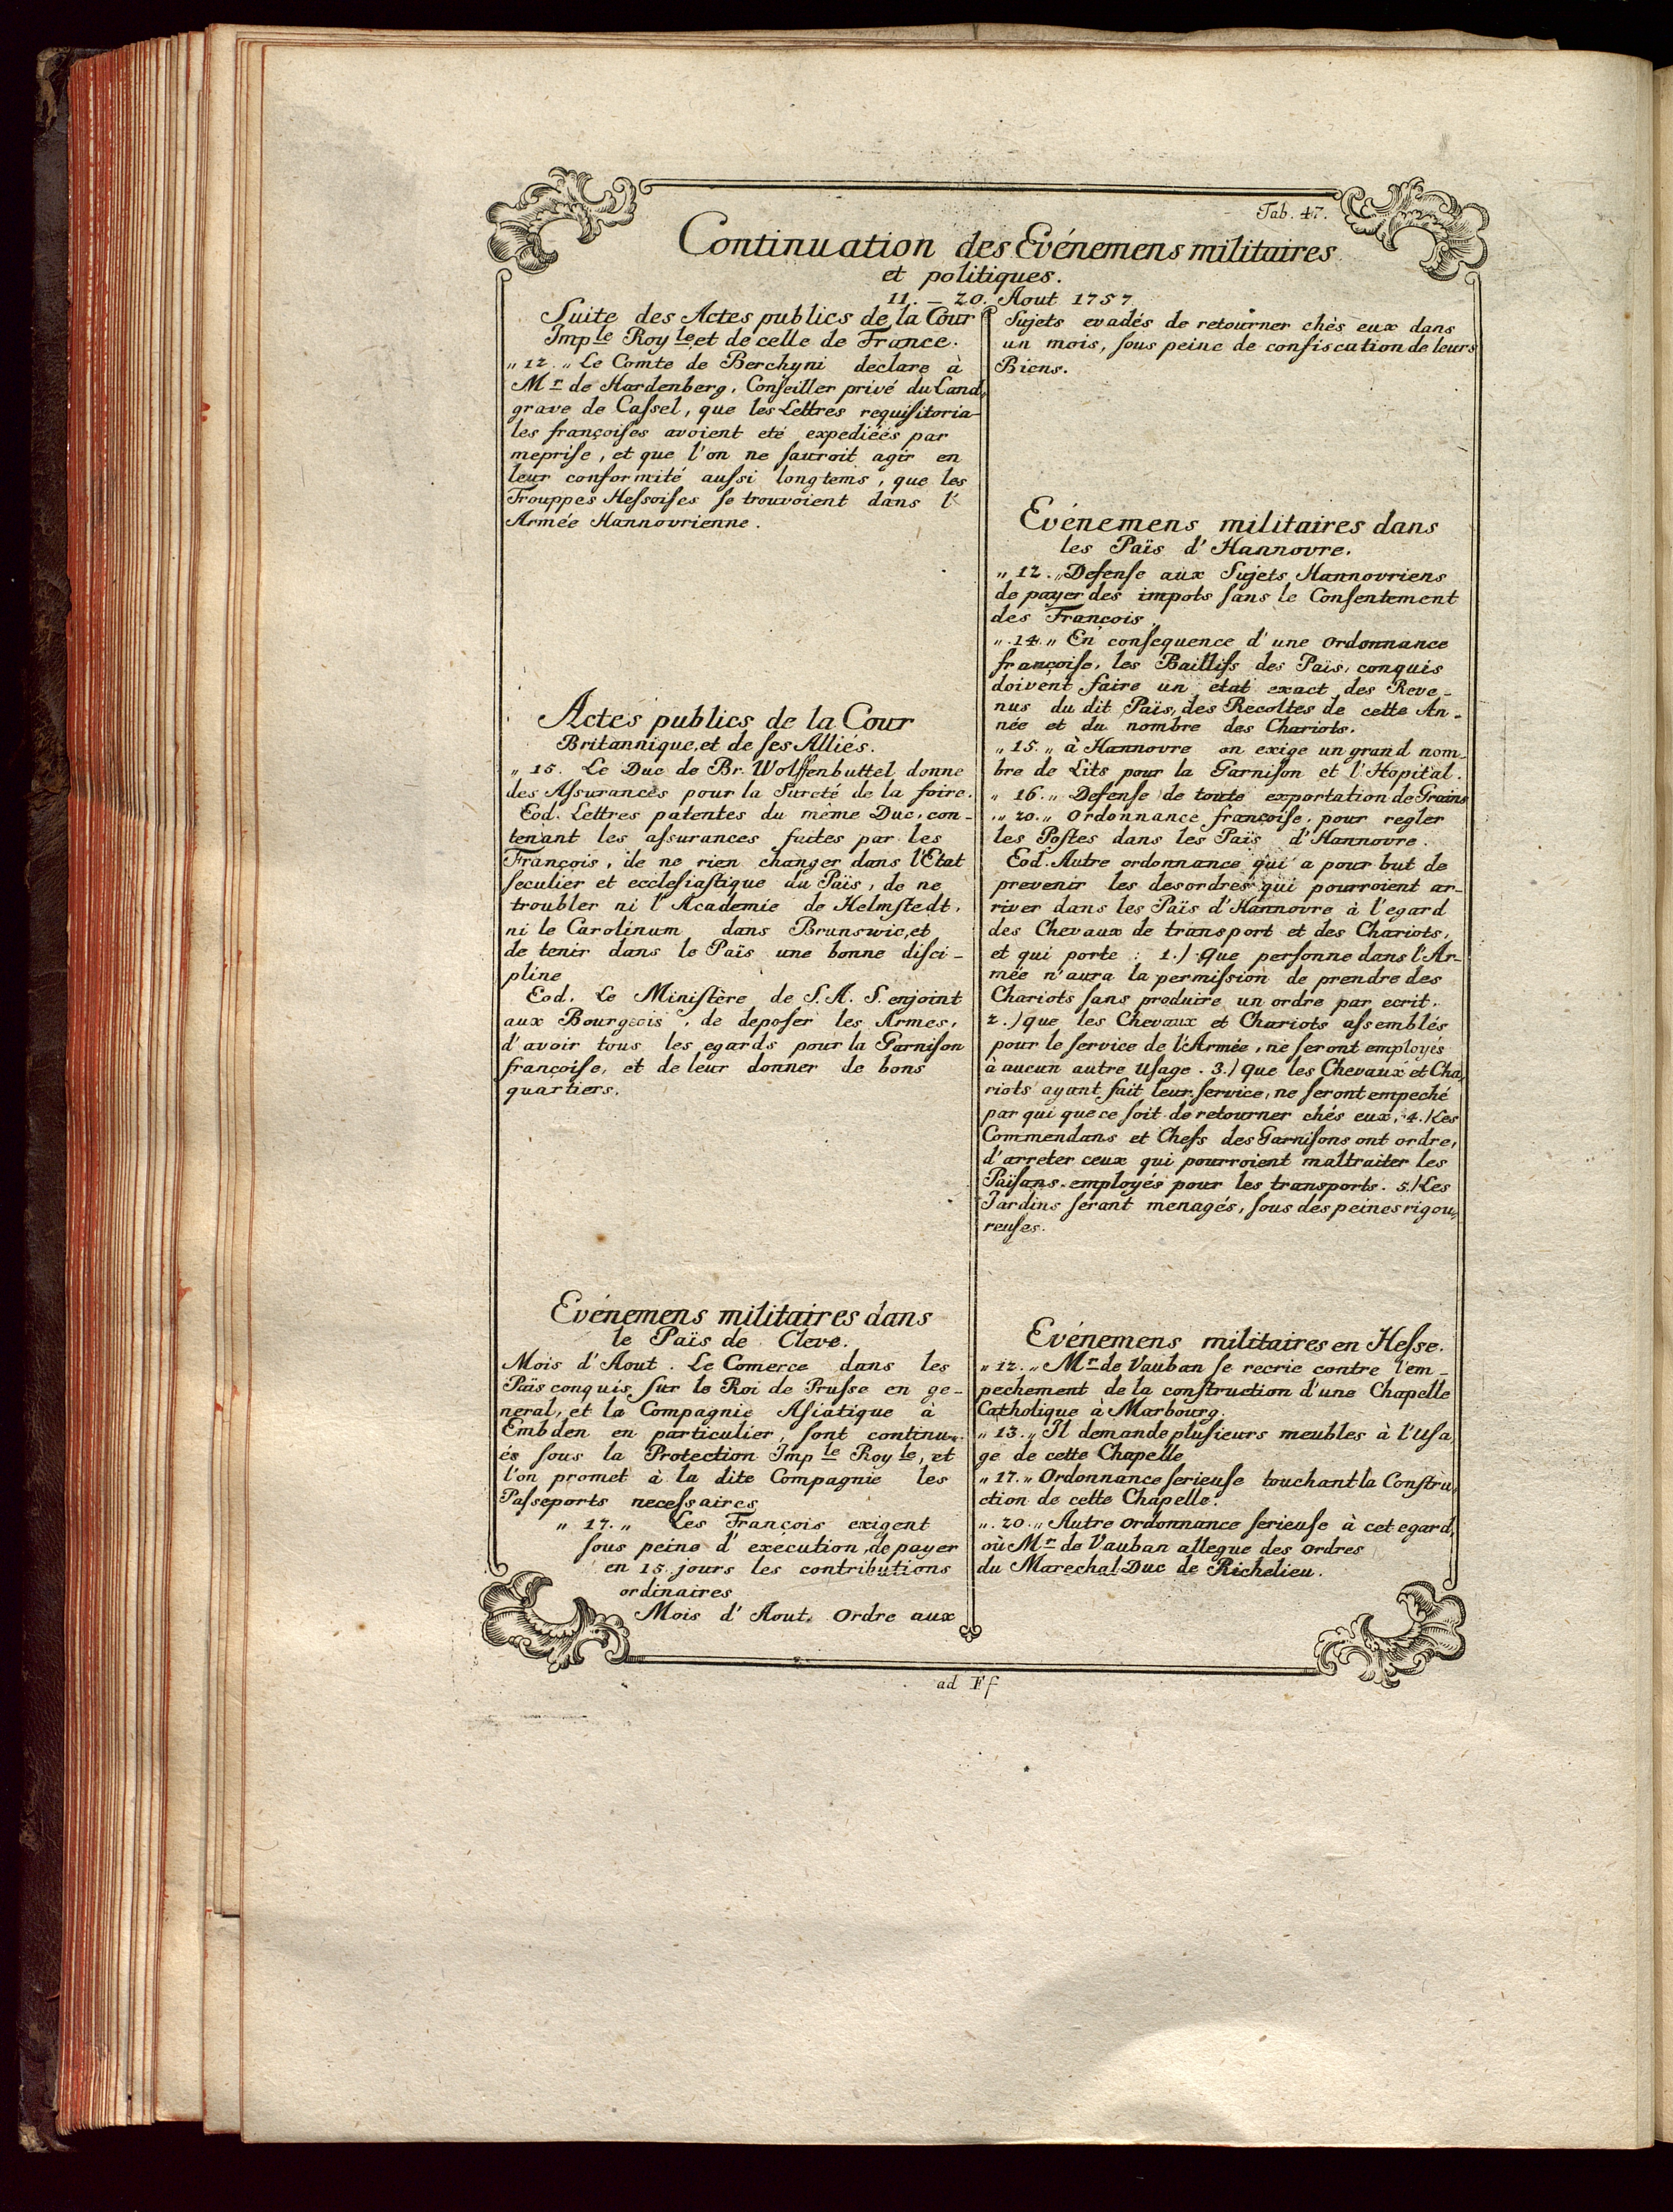 Tab. 47.
Continuation des Evénemens militaires
et politiques.
11. – 20. Aout 1757
Suite des Actes publics de la Cour
Imp le Roy le et de celle de France.
„ 12. „ Le Comte de Berchyni declare à
Mr de Hardenberg, Conseiller privé du Land,
grave de Cassel, que les Lettres requisitoria-
les françoises avoient eté expediéés par
meprise, et que l'on ne sauroit agir en
leur conformité aussi longtems, que les
Trouppes Hessoises se trouvoient dans l'
Armée Hannovrienne.
Actes publics de la Cour
Britannique, et de ses Alliés.
„ 15. Le Duc de Br. Wolffenbuttel donne
des Assurances pour la Sureté de la foire.
Eod. Lettres patentes du même Duc, con-
tenant les assurances faites par les
François, de ne rien changer dans l'Etat
seculier et ecclesiastique du Païs, de ne
troubler ni l'Academie de Helmstedt,
ni le Carolinum dans Brunswic, et
de tenir dans le Païs une bonne disci-
pline
Eod. Le Ministère de S. A. S. enjoint
aux Bourgeois, de deposer les Armes,
d'avoir tous les egards pour la Garnison
françoise, et de leur donner de bons
quartiers.
Evénemens militaires dans
le Païs de Cleve.
Mois d'Aout. Le Comerce dans les
Païs conquis sur le Roi de Prusse en ge-
neral, et la Compagnie Asiatique à
Embden en particulier, sont continu-
és sous la Protection Imp le Roy le, et
l'on promet à la dite Compagnie les
Passeports necessaires
„ 17. „ Les François exigent
sous peine d'execution, de payer
en 15 jours les contributions
ordinaires
Mois d'Aout. Ordre aux
Sujets evadés de retourner chès eux dans
un mois, sous peine de confiscation de leurs
Biens.
Evénemens militaires dans
les Païs d'Hannovre.
„ 12. „ Defense aux Sujets Hannovriens
de payer des impots sans le Consentement
des François.
„ 14. „ En consequence d'une ordonnance
françoise, les Baillifs des Païs, conquis
doivent faire un etat exact des Reve-
nus du dit Païs, des Recoltes de cette An-
née et du nombre des Chariots.
„ 15. „ à Hannovre on exige un grand nom-
bre de Lits pour la Garnison et l'Hopital.
„ 16. „ Defense de toute exportation de Grains
„ 20. „ Ordonnance françoise, pour regler
les Postes dans les Païs d'Hannovre.
Eod. Autre ordonnance qui a pour but de
prevenir les desordres qui pourroient ar-
river dans les Païs d'Hannovre à l'egard
des Chevaux de transport et des Chariots,
et qui porte : 1.) Que personne dans l'Ar-
mée n'aura la permission de prendre des
Chariots sans produire un ordre par ecrit.
2.) que les Chevaux et Chariots assemblés
pour le service de l'Armée, ne seront employés
à aucun autre Usage. 3.) que les Chevaux et Cha,
riots ayant fait leur service, ne seront empeché
par qui que ce soit de retourner chés eux, 4.) Les
Commendans et Chefs des Garnisons ont ordre,
d'arreter ceux qui pourroient maltraiter les
Païsans employés pour les transports. 5.) Les
Jardins serant menagés, sous des peines rigou,
reuses.
Evénemens militaires en Hesse.
„ 12. „ Mr de Vauban se recrie contre l'em-
pechement de la construction d'une Chapelle
Catholique à Marbourg.
„ 13. „ Il demande plusieurs meubles à l'Usa,
ge de cette Chapelle
„ 17. „ Ordonnance serieuse touchant la Constru,
ction de cette Chapelle.
„ 20. „ Autre ordonnance serieuse à cet egard,
où Mr de Vauban allegue des ordres
du Marechal Duc de Richelieu.
ad Ff